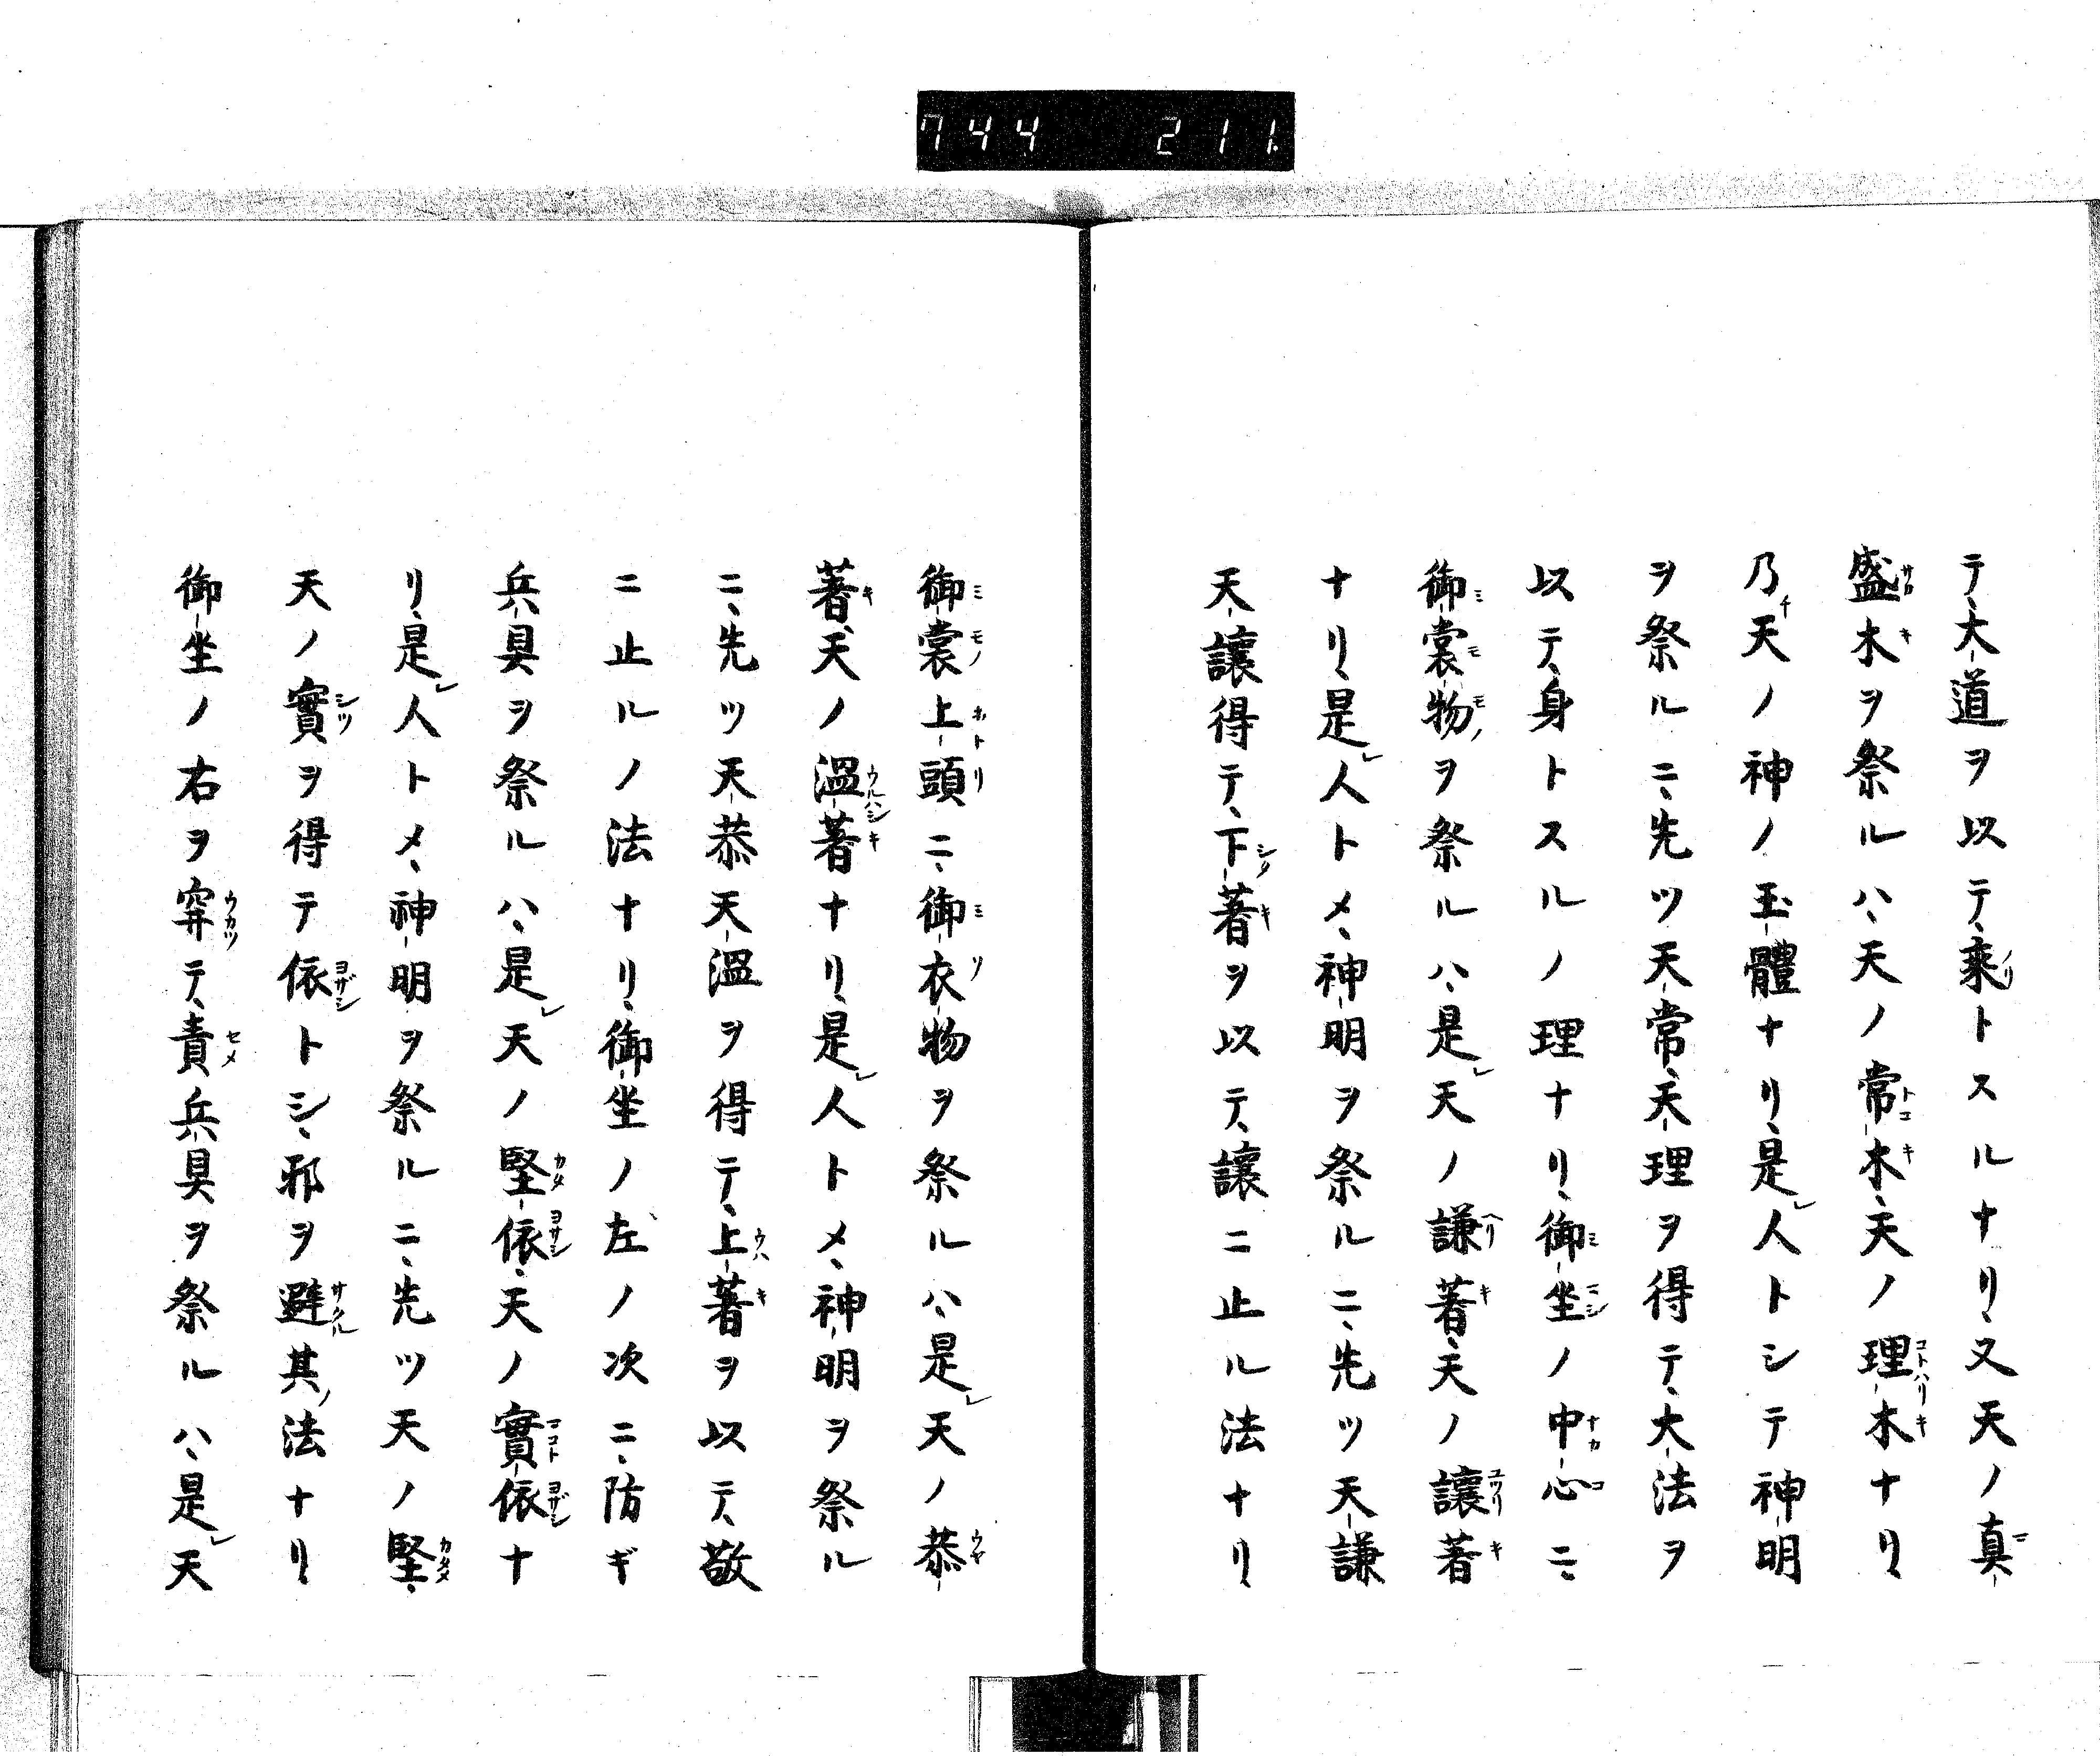 744 211
テ、大道ヲ以テ、乘トスルナリ、又天ノ真
盛木ヲ祭ルハ、天ノ常木、天ノ理木ナリ
乃天ノ神ノ玉體ナリ、是人トシテ神明
ヲ祭ルニ、先ツ天常、天理ヲ得テ、大法ヲ
以テ、身トスルノ理ナリ、御坐ノ中心ニ
御裳物ヲ祭ルハ、是天ノ謙著、天ノ讓著
ナリ、是人トメ、神明ヲ祭ルニ、先ツ天謙
天讓得テ、下著ヲ以テ、讓ニ止ル法ナリ
御裳上頭ニ、御衣物ヲ祭ルハ、是天ノ恭
著、天ノ溫著ナリ、是人トメ、神明ヲ祭ル
ニ、先ツ天恭天溫ヲ得テ、上著ヲ以テ、敬
ニ止ルノ法ナリ、御坐ノ左ノ次ニ、防ギ
兵具ヲ祭ルハ、是天ノ堅依、天ノ實依ナ
リ、是人トメ、神明ヲ祭ルニ、先ツ天ノ堅、
天ノ實ヲ得テ依トシ、邪ヲ避其法ナリ
御坐ノ右ヲ穿テ、責兵具ヲ祭ルハ、是天